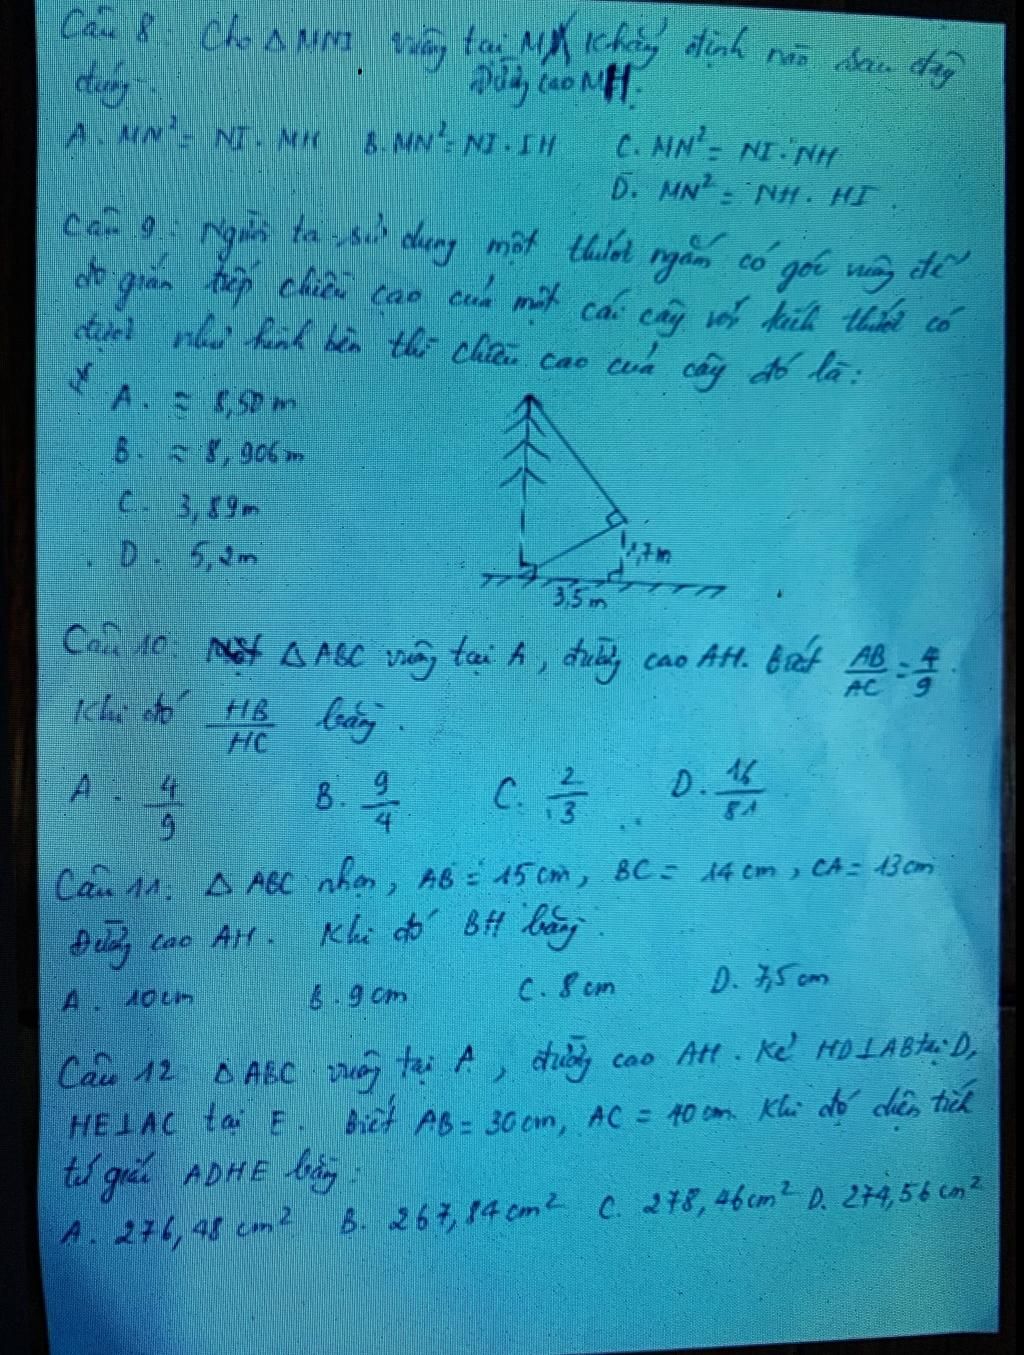 Câu 8. Cho Δ MNI vuông tại M Khẳng định nào sau đây
đúng. Đường cao MH.
A. MN² = NI . MH B. MN² = NI . IH C. MN² = NI . NH
D. MN² = NH . HI .
Câu 9 : Người ta sử dụng một thước ngắm có góc vuông để
đo gián tiếp chiều cao của một cái cây với kích thước có
được như hình bên thì chiều cao của cây đó là :
A . ≈ 8,50 m
B . ≈ 8,906 m
C . 3,89m
D . 5,2m
1,7m
3,5m
Câu 10: Δ ABC vuông tại A, đường cao AH. biết AB/AC = 4/9 .
Khi đó HB/HC bằng .
A . 4/9 B. 9/4 C. 2/3 D. 16/81
Câu 11: Δ ABC nhọn, AB = 15 cm, BC = 14 cm, CA = 13cm
Đường cao AH. Khi đó BH bằng .
A . 10cm B. 9 cm C. 8 cm D. 7,5 cm
Câu 12 Δ ABC vuông tại A, đường cao AH. Kẻ HD⊥AB tại D,
HE⊥AC tại E. Biết AB = 30cm, AC = 40 cm. Khi đó diện tích
tứ giác ADHE bằng :
A . 276,48 cm² B. 267,84 cm² C. 278,46cm² D. 274,56 cm²